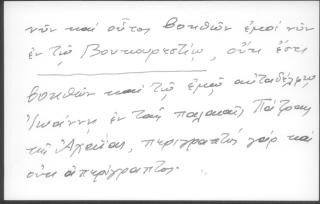 νῦν καὶ οὗτος βοηθῶν ἐμοὶ νῦν
ἐν τῷ Βουκουρεστίῳ, οὐκ ἔστι
βοηθῶν καὶ τῷ ἐμῷ αὐταδέλφῳ
Ἰωάννῃ ἐν ταῖς παλαιαῖς Πάτραις
τῆς Ἀχαΐας, περιγραπτὸς γάρ καὶ
οὐκ ἀπερίγραπτος.